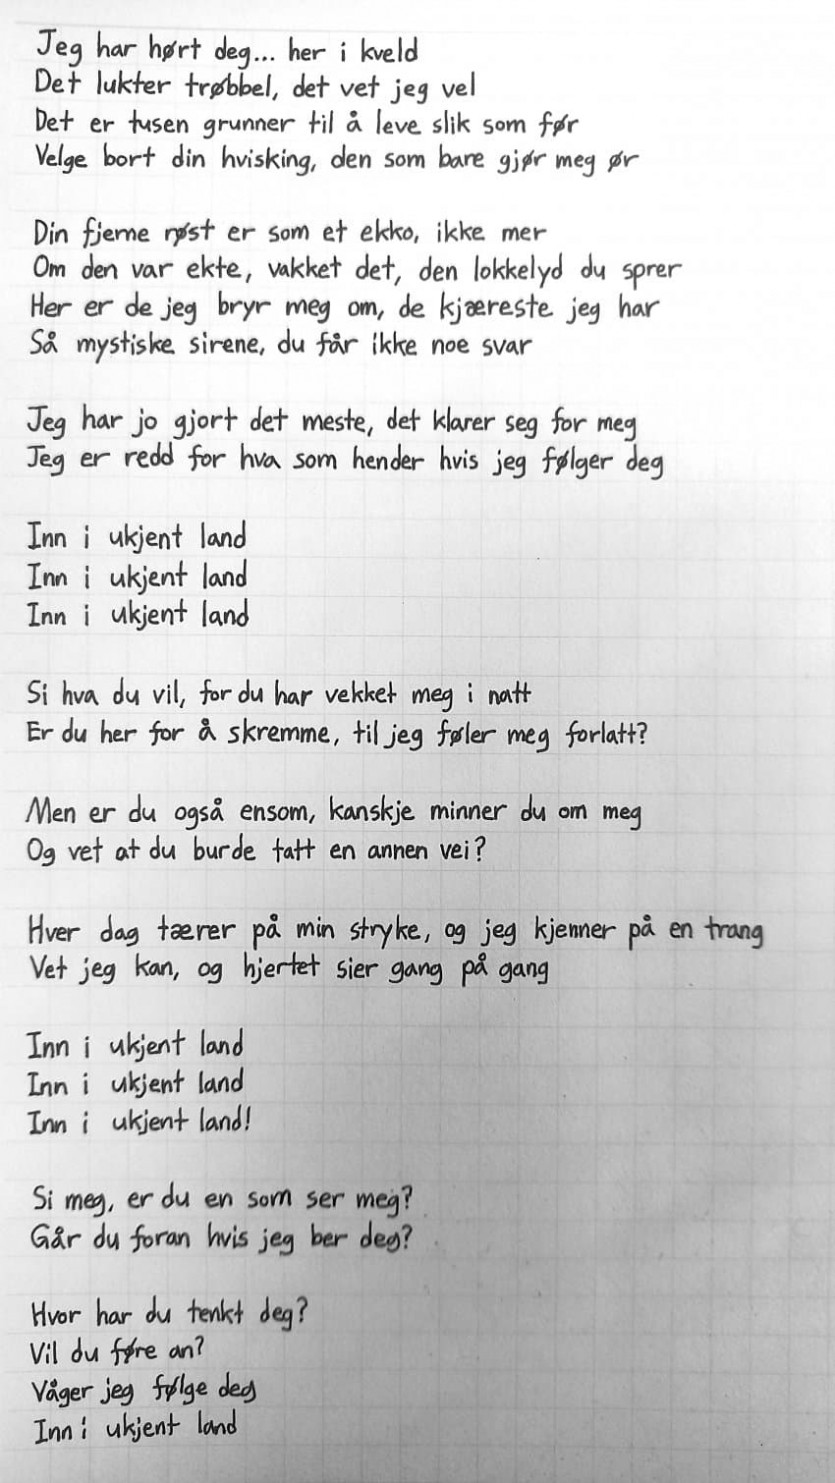 Jeg har hørt deg... her i kveld
Det lukter trøbbel, det vet jeg vel
Det er tusen grunner til å leve slik som før
Velge bort din hvisking, den som bare gjør meg ør
Din fjerne røst er som et ekko, ikke mer
Om den var ekte, vakket det, den lokkelyd du sprer
Her er de jeg bryr meg om, de kjæreste jeg har
Så mystiske sirene, du får ikke noe svar
Jeg har jo gjort det meste, det klarer seg for meg
Jeg er redd for hva som hender hvis jeg følger deg
Inn i ukjent land
Inn i ukjent land
Inn i ukjent land
Si hva du vil, for du har vekket meg i natt
Er du her for å skremme, til jeg føler meg forlatt?
Men er du også ensom, kanskje minner du om meg
Og vet at du burde tatt en annen vei?
Hver dag tærer på min stryke, og jeg kjenner på en trang
Vet jeg kan, og hjertet sier gang på gang
Inn i ukjent land
Inn i ukjent land
Inn i ukjent land!
Si meg, er du en som ser meg?
Går du foran hvis jeg ber deg?
Hvor har du tenkt deg?
Vil du føre an?
Våger jeg følge deg
Inn i ukjent land